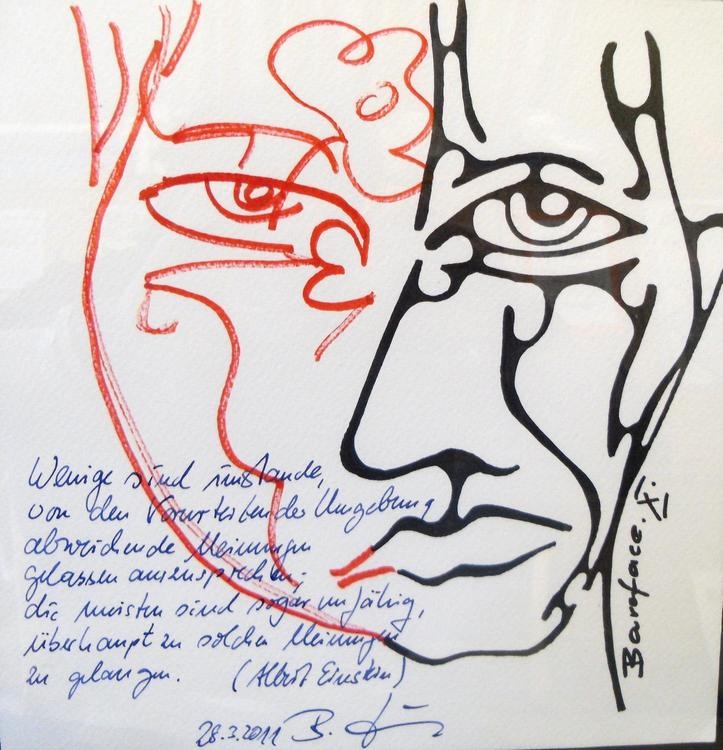 Wenige sind imstande,
von den Vorurteilen der Umgebung
abweichende Meinungen
gelassen auszusprechen;
die meisten sind sogar unfähig,
überhaupt zu solchen Meinungen
zu gelangen. (Albert Einstein)
28.3.2011 B.
Baroface.